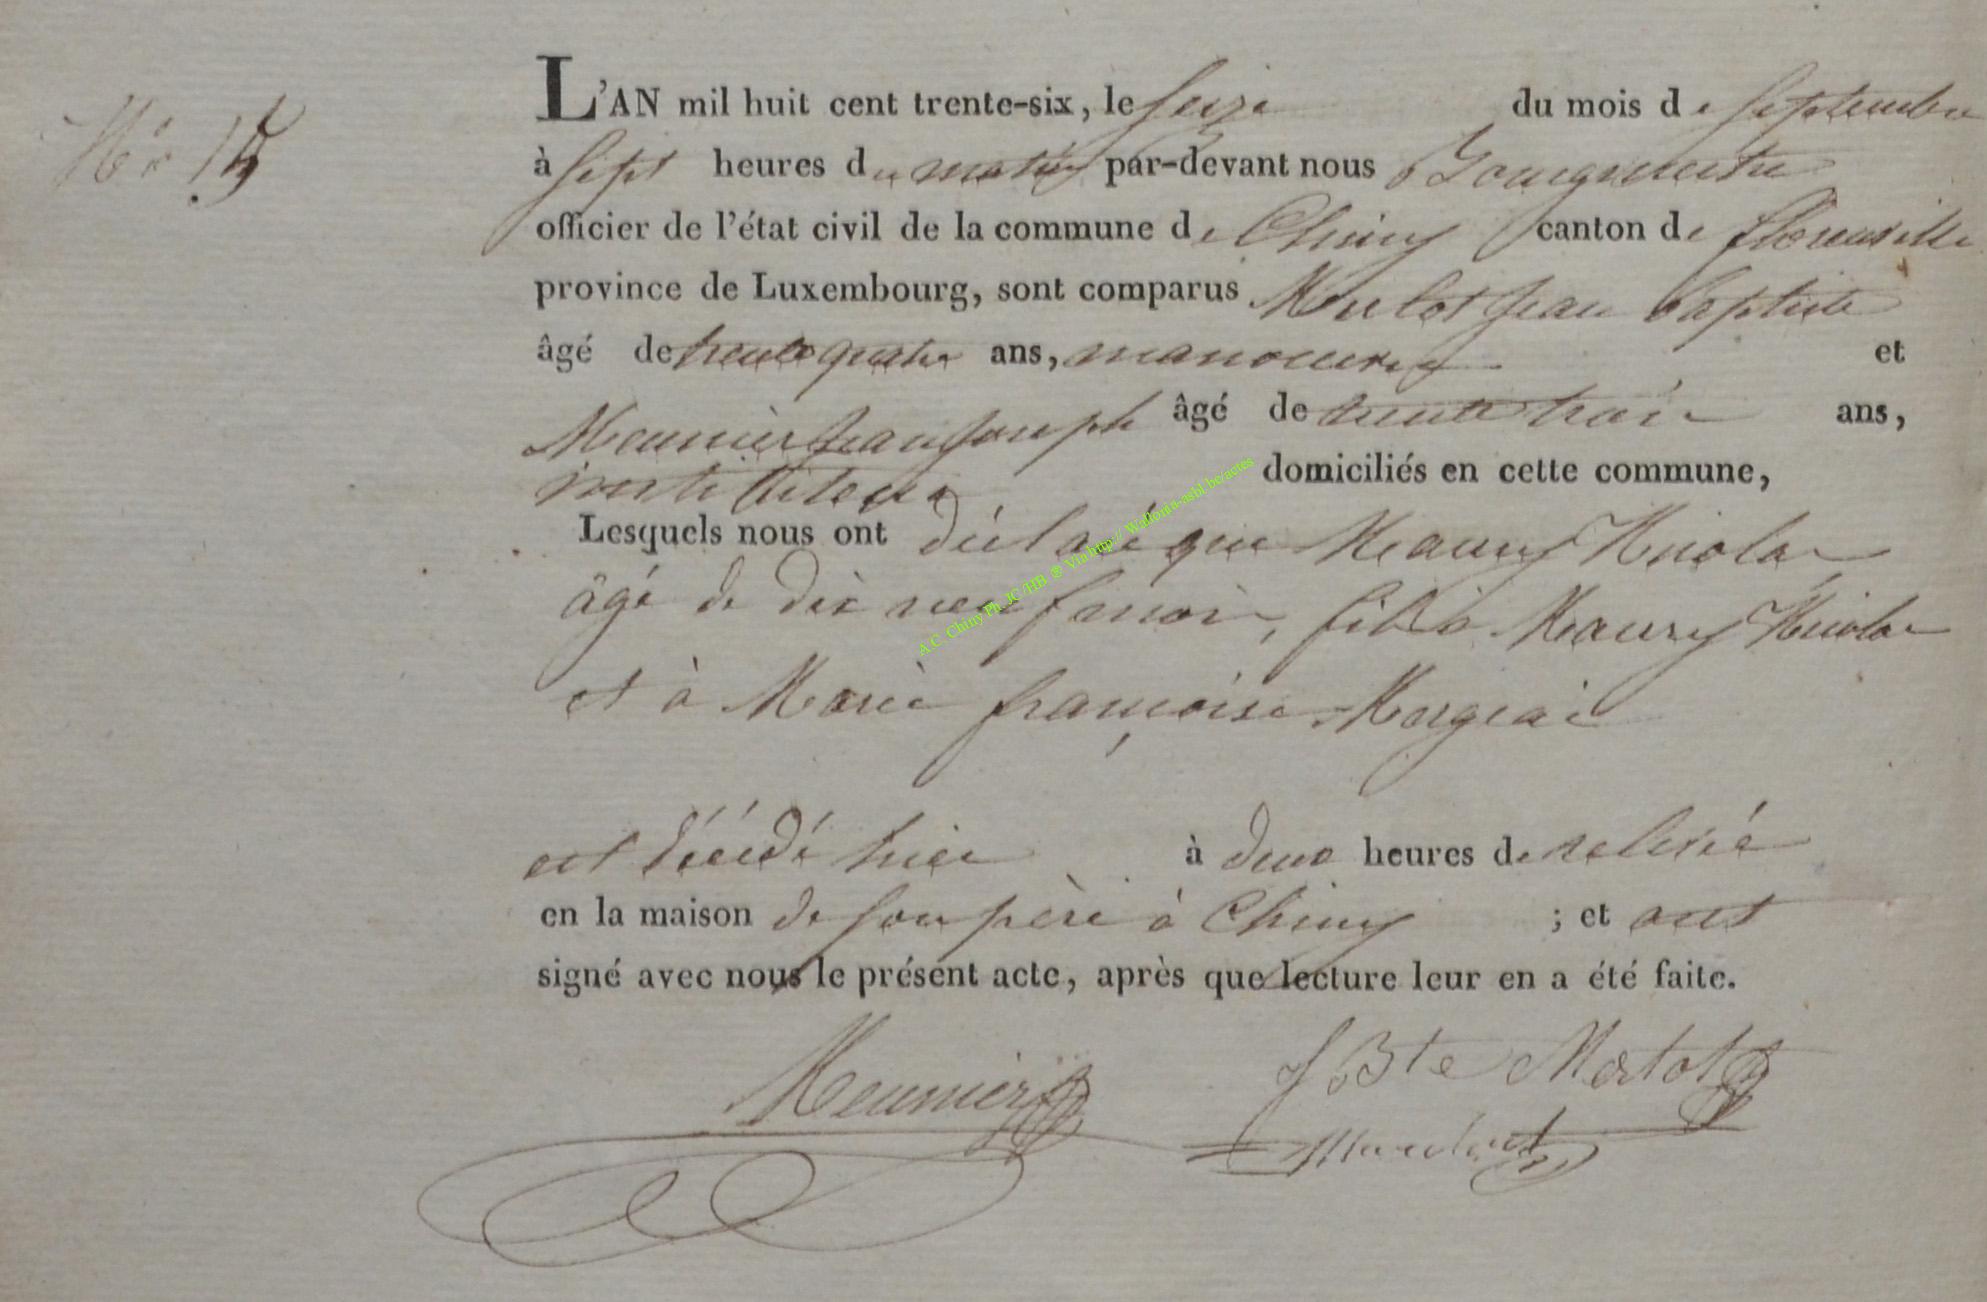 No 15
L'AN mil huit cent trente-six, le seize du mois de septembre
à sept heures du matin par-devant nous Bourgmestre
officier de l'état civil de la commune de Chiny canton de florenville
province de Luxembourg, sont comparus Merlot Jean baptiste
âgé de trente quatre ans, manoeuvre et
Meunier Jean Joseph âgé de trente trois ans,
instituteur domiciliés en cette commune,
Lesquels nous ont déclaré que Maury Nicolas
âgé de dix neuf mois, fils à Maury Nicolas
et à Marie françoise
est décédé hier à deux heures de relevée
en la maison de son père à Chiny ; et ont
signé avec nous le présent acte, après que lecture leur en a été faite.
Meunier J Bte Merlot
A.C. Chiny Ph. JC /HB ® Via http:// Wallonia-asbl.be/actes